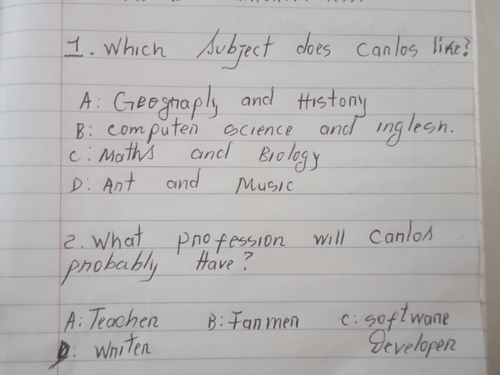 1. Which subject does Carlos like?
A: Geograply and History
B: computer science and inglesh.
C: Maths and Biology
D: Art and Music
2. What profession will Carlos
probably Have?
A: Teacher B: Farmer C: software
D: Writer Developer